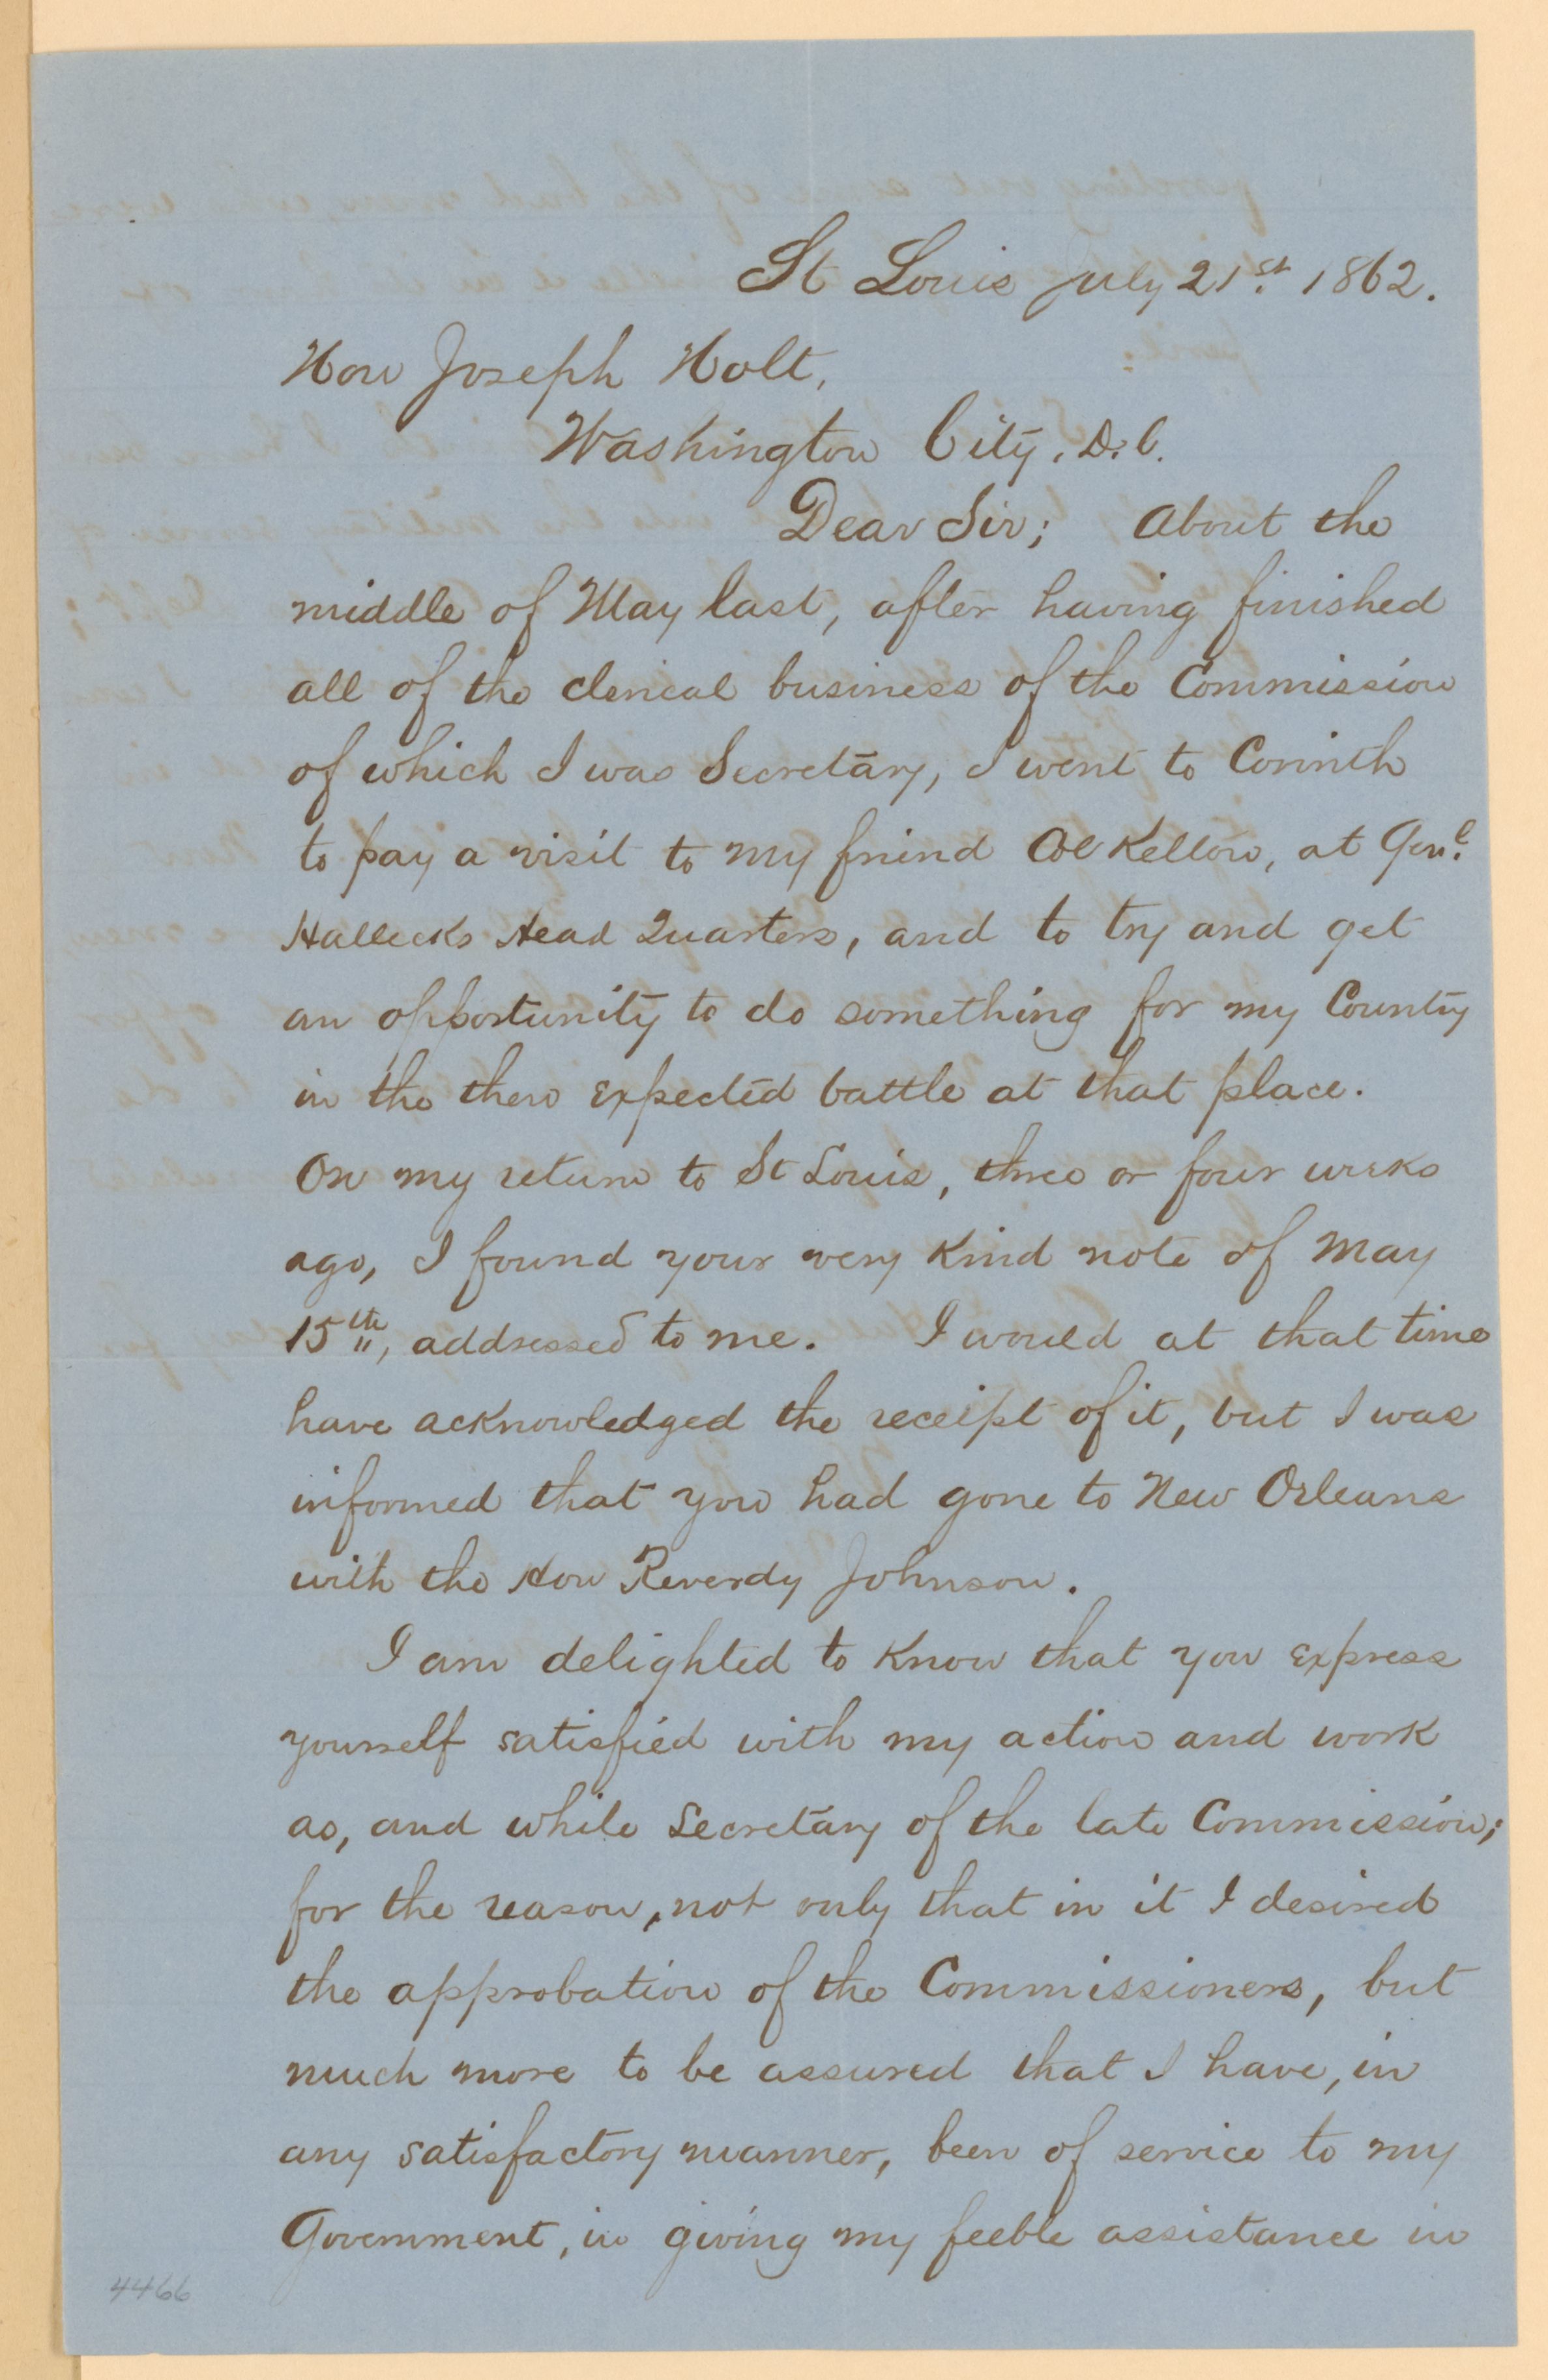 St Louis July 21st. 1862.
Hon Joseph Holt,
Washington City, D.C.
Dear Sir; About the
middle of May last, after having finished
all of the clerical business of the Commission
of which I was Secretary, I went to Corinth
to pay a visit to my friend Col Kelton, at Genl.
Hallecks Head Quarters, and to try and get
an opportunity to do something for my Country
in the then expected battle at that place.
On my return to St Louis, three or four weeks
ago, I found your very kind note of May
15th, addressed to me. I would at that time
have acknowledged the receipt of it, but I was
informed that you had gone to New Orleans
with the Hon Reverdy Johnson.
I am delighted to know that you express
yourself satisfied with my action and work
as, and while Secretary of the late Commission;
for the reason, not only that in it I desired
the approbation of the Commissioners, but
much more to be assured that I have, in
any satisfactory manner, been of service to my
Government, in giving my feeble assistance in
4466